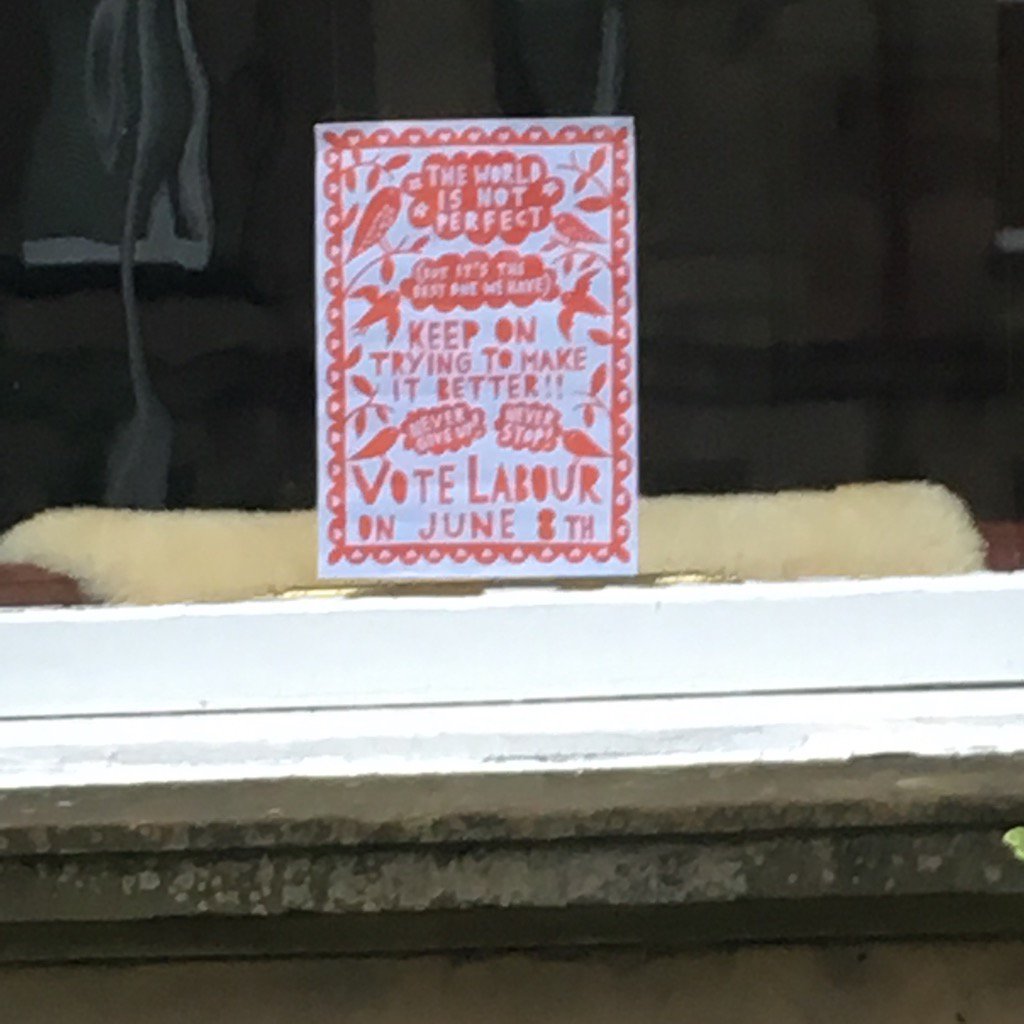 THE WORLD
IS NOT
PERFECT
(BUT IT'S THE
BEST ONE WE HAVE)
KEEP ON
TRYING TO MAKE
IT BETTER!!
NEVER
GIVE UP!
NEVER
STOP!
VOTE LABOUR
ON JUNE 8TH